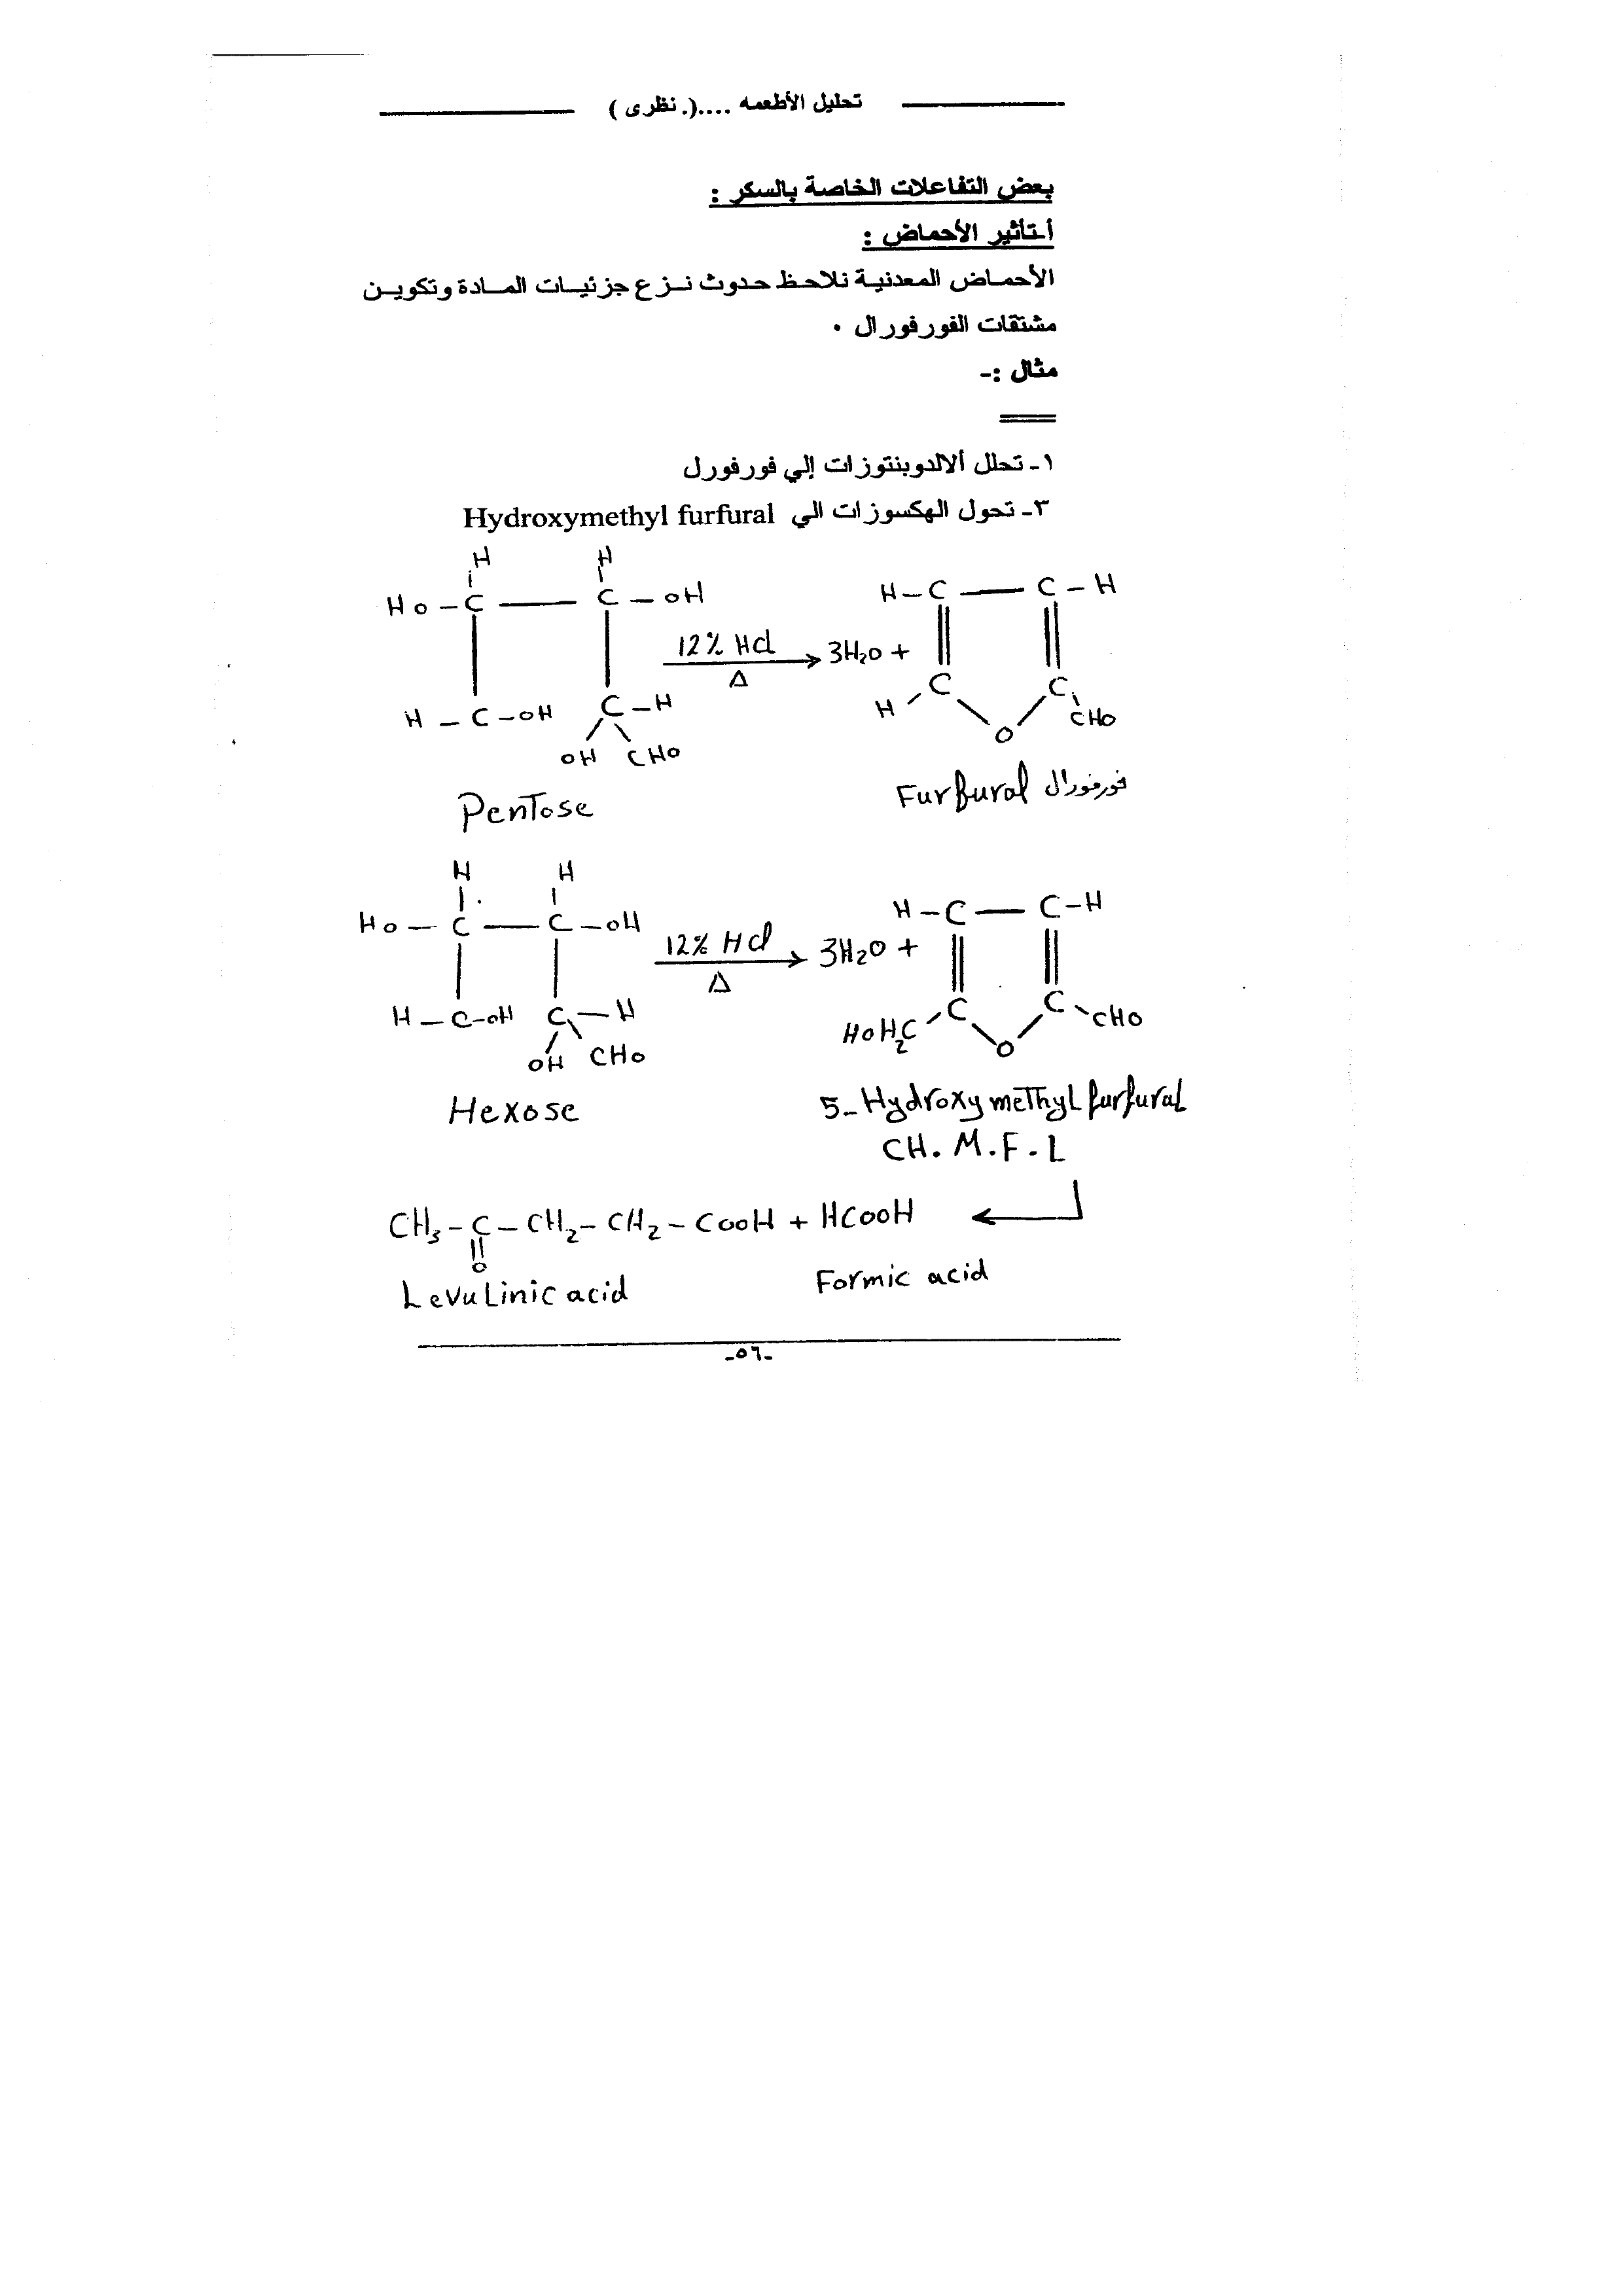 تحليل الأطعمه ....(. نظرى )
بعض التفاعلات الخاصة بالسكر :
أ-تأثير الأحماض :
الأحماض المعدنية نلاحظ حدوث نزع جزئيات المادة وتكوين
مشتقات الفورفورال ٠
مثال :-
١- تحلل ألالدوبنتوزات إلي فورفورل
٣- تحول الهكسوزات الي Hydroxymethyl furfural
H H
Ho - C — C - oH H - C — C - H
12% HCl 3H₂O +
Δ
H - C - oH C - H H C C CHO
OH CHO O
Pentose Furfural فورفورال
H H
Ho - C — C - oH H - C — C - H
12% HCl 3H₂O +
Δ
H - C - oH C - H HOH₂C C C CHO
OH CHO O
Hexose 5-Hydroxy methyl furfural
CH. M. F. L
CH₃ - C - CH₂ - CH₂ - COOH + HCOOH
O
Levulinic acid Formic acid
-٥٦-